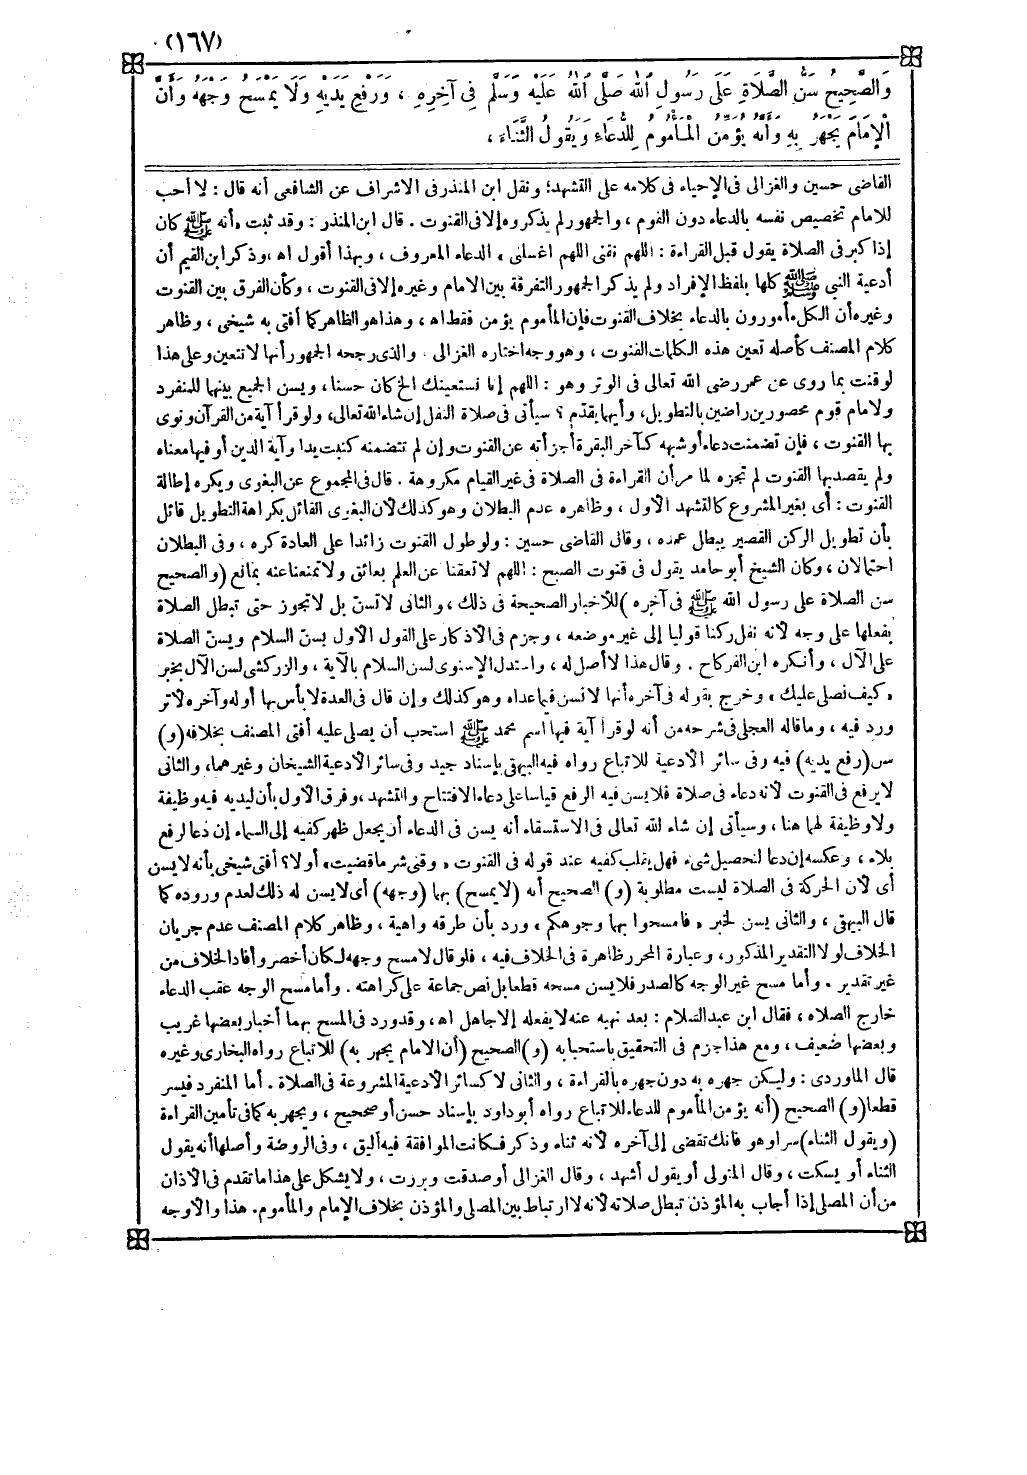 (١٦٧)
وَالصَّحِيحُ سَنُّ الصَّلَاةِ عَلَى رَسُولِ اللهِ صَلَّى اللهُ عَلَيْهِ وَسَلَّمَ فِي آخِرِهِ ، وَرَفْعِ يَدَيْهِ وَلَا يَمْسَحُ وَجْهَهُ وَأَنَّ
الْإِمَامَ يَجْهَرُ بِهِ وَأَنَّهُ يُؤَمِّنُ الْمَأْمُومُ لِلدُّعَاءِ وَيَقُولُ الثَّنَاءَ ،
القاضى حسين والغزالى فى الإحياء فى كلامه على التشهد؛ ونقل ابن المنذر فى الاشراف عن الشافعى أنه قال : لا أحب
للامام تخصيص نفسه بالدعاء دون القوم ، والجمهور لم يذكروه إلا فى القنوت . قال ابن المنذر : وقد ثبت « أنه ﷺ كان
إذا كبر فى الصلاة يقول قبل القراءة : اللهم نقنى اللهم اغسلنى » الدعاء المعروف ، وبهذا أقول اه ، وذكر ابن القيم أن
أدعية النبى ﷺ كلها بلفظ الإفراد ولم يذكر الجمهور التفرقة بين الامام وغيره إلا فى القنوت ، وكأن الفرق بين القنوت
وغيره أن الكل مأمورون بالدعاء بخلاف القنوت فإن المأموم يؤمن فقط اه ، وهذا هو الظاهر كما أفتى به شيخى ، وظاهر
كلام المصنف كأصله تعين هذه الكلمات القنوت ، وهو وجه اختاره الغزالى . والذى رجحه الجمهور أنها لا تتعين وعلى هذا
لو قنت بما روى عن عمر رضى الله تعالى فى الوتر وهو : اللهم إنا نستعينك الخ كان حسنا ، ويسن الجميع بينها للمنفرد
ولامام قوم محصورين راضين بالتطويل ، وأيهما يقدّم ؟ سيأتى فى صلاة النفل إن شاء الله تعالى، ولو قرأ آية من القرآن ونوى
بها القنوت ، فإن تضمنت دعاء أو شبهه كآخر البقرة أجزأته عن القنوت وإن لم تتضمنه كتبت يدا وآية الدين أو فيها معناه
ولم يقصد بها القنوت لم تجزه لما مر أن القراءة فى الصلاة فى غير القيام مكروهة . قال فى المجموع عن البغوى ويكره إطالة
القنوت : أى بغير المشروع كالتشهد الأول ، وظاهره عدم البطلان وهو كذلك لأن البغوى القائل بكراهة التطويل قائل
بأن تطويل الركن القصير يبطل عمده ، وقال القاضى حسين : ولو طول القنوت زائدا على العادة كره ، وفى البطلان
احتمالان ، وكان الشيخ أبو حامد يقول فى قنوت الصبح : اللهم لا تعقنا عن العلم بعائق ولا تمنعنا عنه بمانع (والصحيح
سن الصلاة على رسول الله ﷺ فى آخره ) للأخبار الصحيحة فى ذلك ، والثانى لا تسنّ بل لا تجوز حتى تبطل الصلاة
بفعلها على وجه لأنه نقل ركنا قوليا إلى غير موضعه ، وجزم فى الأذكار على القول الأول بسنّ السلام ويسنّ الصلاة
على الآل ، وأنكره ابن الفركاح . وقال هذا لا أصل له ، واستدل الإسنوى لسن السلام بالآية ، والزركشى لسن الآل بخبر
« كيف نصلى عليك » وخرج بقوله فى آخره أنها لا تسن فيما عداه وهو كذلك وإن قال فى العدة لا بأس بها أوله وآخره لأثر
ورد فيه ، وما قاله العجلى فى شرحه من أنه لو قرأ آية فيها اسم محمد ﷺ استحب أن يصلى عليه أفتى المصنف بخلافه (و)
سن (رفع يديه) فيه وفى سائر الأدعية للاتباع رواه فيه البيهقى بإسناد جيد وفى سائر الأدعية الشيخان وغيرهما، والثانى
لا يرفع فى القنوت لأنه دعاء فى صلاة فلا يسن فيه الرفع قياسا على دعاء الافتتاح والتشهد ، وفرق الأول بأن ليديه فيه وظيفة
ولا وظيفة لهما هنا ، وسيأتى إن شاء الله تعالى فى الاستسقاء أنه يسن فى الدعاء أن يجعل ظهر كفيه إلى السماء إن دعا لرفع
بلاء ، وعكسه إن دعا لتحصيل شىء فهل يقلب كفيه عند قوله فى القنوت « وقنى شر ما قضيت » أو لا؟ أفتى شيخى بأنه لا يسن
أى لأن الحركة فى الصلاة ليست مطلوبة (و) الصحيح أنه (لا يمسح) بهما (وجهه) أى لا يسن له ذلك لعدم وروده كما
قال البيهقى ، والثانى يسن لخبر « فامسحوا بها وجوهكم » ورد بأن طرقه واهية ، وظاهر كلام المصنف عدم جريان
الخلاف لولا التقدير المذكور، وعبارة المحرر ظاهرة فى الخلاف فيه ، فلو قال لا مسح وجهه لكان أخصر وأفاد الخلاف من
غير تقدير . وأما مسح غير الوجه كالصدر فلا يسن مسحه قطعا بل نص جماعة على كراهته . وأما مسح الوجه عقب الدعاء
خارج الصلاه ، فقال ابن عبد السلام : بعد نهيه عنه لا يفعله إلا جاهل اه ، وقد ورد فى المسح بهما أخبار بعضها غريب
وبعضها ضعيف ، ومع هذا جزم فى التحقيق باستحبابه (و) الصحيح (أن الامام يجهر به) للاتباع رواه البخارى وغيره
قال الماوردى : وليكن جهره به دون جهره بالقراءة ، والثانى لا كسائر الأدعية المشروعة فى الصلاة . أما المنفرد فيسر
قطعا (و) الصحيح (أنه يؤمن المأموم للدعاء) للاتباع رواه أبو داود بإسناد حسن أو صحيح ، ويجهر به كما فى تأمين القراءة
(ويقول الثناء) سرا وهو فانك تقضى إلى آخره لأنه ثناء وذكر فكانت الموافقة فيه أليق ، وفى الروضة وأصلها أنه يقول
الثناء أو يسكت ، وقال المتولى أو يقول أشهد ، وقال الغزالى أو صدقت وبررت ، ولا يشكل على هذا ما تقدم فى الأذان
من أن المصلى إذا أجاب به المؤذن تبطل صلاته لأنه لا ارتباط بين المصلى والمؤذن بخلاف الإمام والمأموم. هذا والأوجه